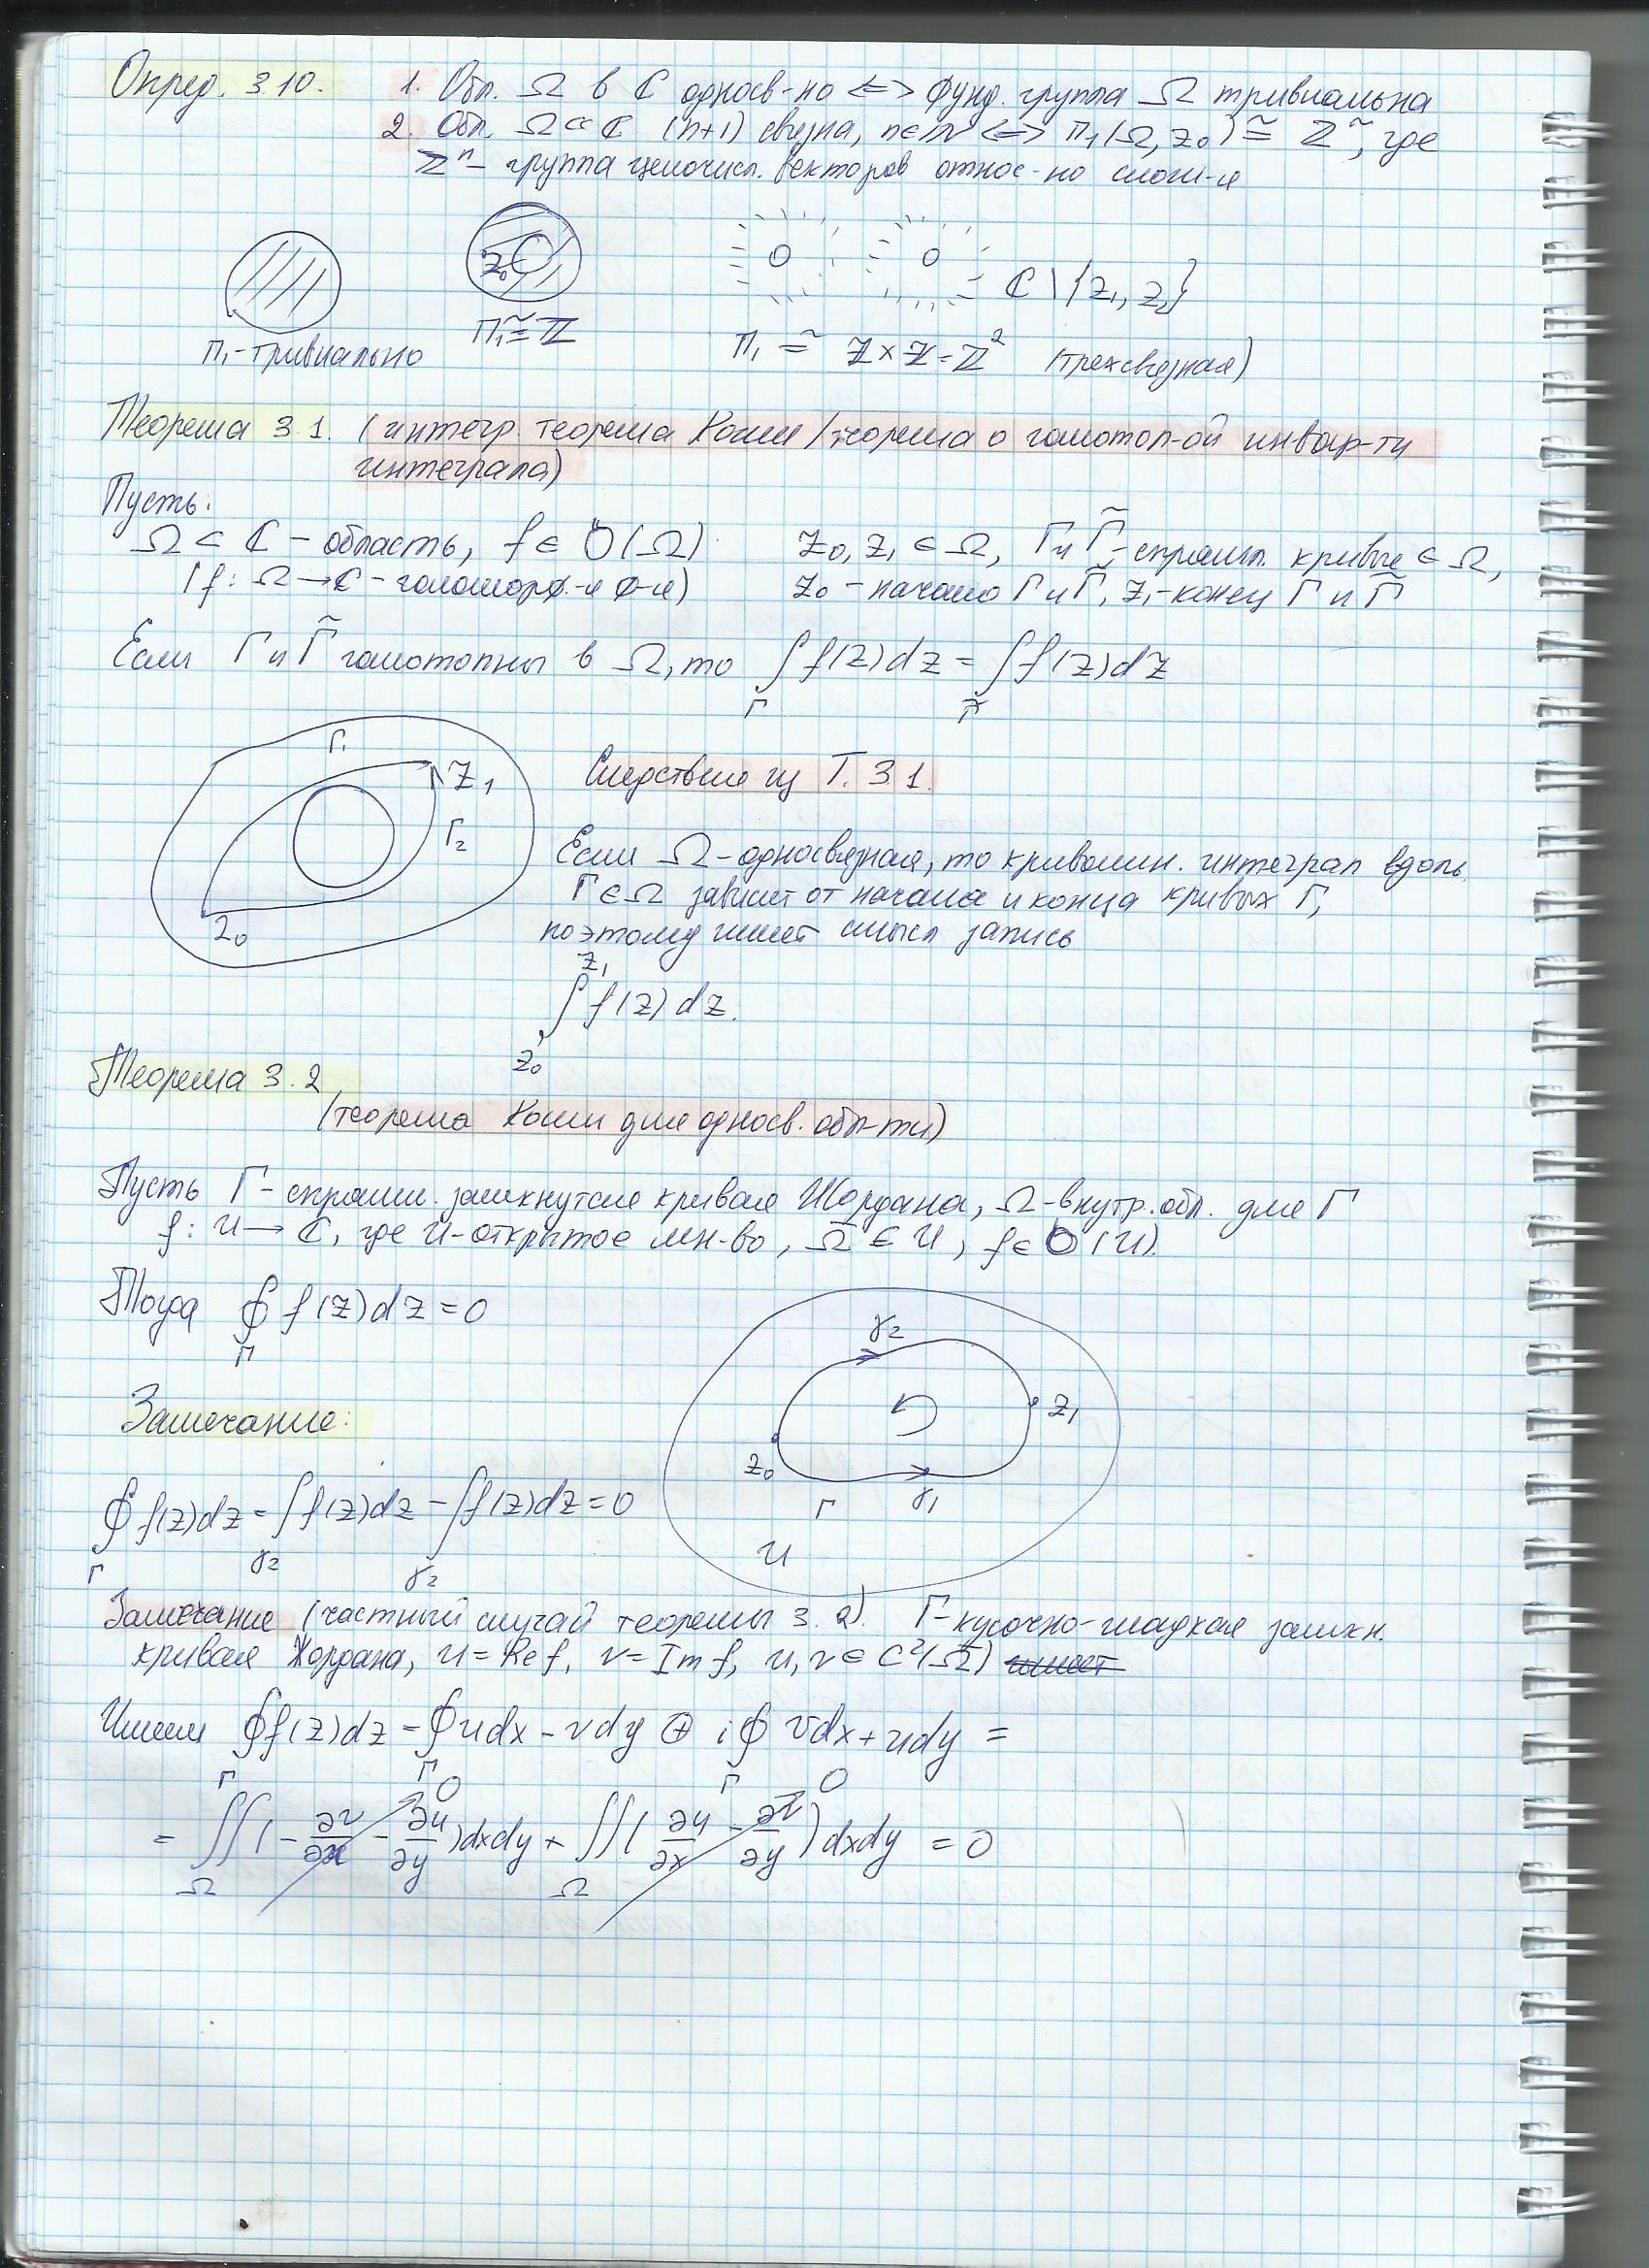 Опред. 3.10. 1. Обл. Ω в ℂ односв-но <=> фунд. группа Ω тривиальна
2. Обл. Ω ⊂ ℂ (n+1) связна, n∈ℕ <=> π₁(Ω, z₀) ≅ ℤⁿ, где
ℤⁿ – группа целочисл. векторов относ-но слож-я
z₀
ℂ \ {z₁, z₂}
π₁ ≅ ℤ
π₁-тривиально
π₁ ≅ ℤ×ℤ = ℤ² (трехсвязная)
Теорема 3.1. (интегр. теорема Коши / теорема о гомотоп-ой инвар-ти
интеграла)
Пусть:
Ω ⊂ ℂ – область, f ∈ O(Ω) z₀, z₁ ∈ Ω, Γ и Γ̃ - спрямл. кривые ∈ Ω,
(f: Ω → ℂ – голоморф-я ф-я) z₀ – начало Γ и Γ̃, z₁-конец Γ и Γ̃
Если Γ и Γ̃ гомотопны в Ω, то ∫f(z)dz = ∫f(z)dz
Γ Γ̃
Γ₁
z₁
Γ₂
z₀
Следствие из Т. 3.1.
Если Ω – односвязная, то криволин. интеграл вдоль
Γ ∈ Ω зависит от начала и конца кривых Γ,
поэтому имеет смысл запись
z₁
∫ f(z) dz.
z₀
Теорема 3.2
(теорема Коши для односв. обл-ти)
Пусть Γ – спрямл. замкнутая кривая Жордана, Ω-внутр. обл. для Γ
f: U → ℂ, где U-открытое мн-во, Ω̄ ∈ U, f ∈ O(U).
Тогда ∮ f(z)dz = 0
Γ
γ₂
z₁
z₀
γ₁
Γ
U
Замечание:
∮ f(z)dz = ∫f(z)dz – ∫f(z)dz = 0
Γ γ₂ γ₂
Замечание (частный случай теоремы 3.2). Γ-кусочно-гладкая замкн.
кривая Жордана, u = Re f, v = Im f, u, v ∈ C²(Ω̄)
Имеем ∮f(z)dz = ∮udx – vdy ⊕ i∮ vdx + udy =
Γ Γ Γ
0 0
= ∬(– ∂v/∂x – ∂u/∂y)dxdy + ∬(∂u/∂x – ∂v/∂y)dxdy = 0
Ω Ω